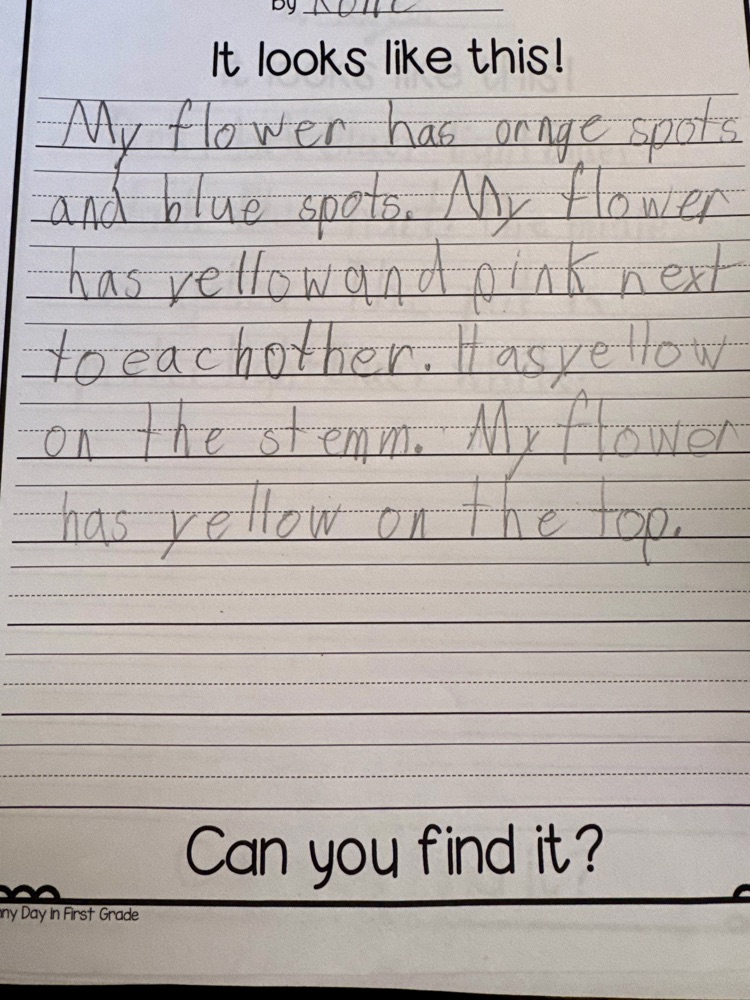 by
It looks like this!
My flower has ornge spots
and blue spots. My flower
has yellow and pink next
to eachother. Hasyellow
on the stemm. My flower
has yellow on the top.
Can you find it?
ny Day in First Grade